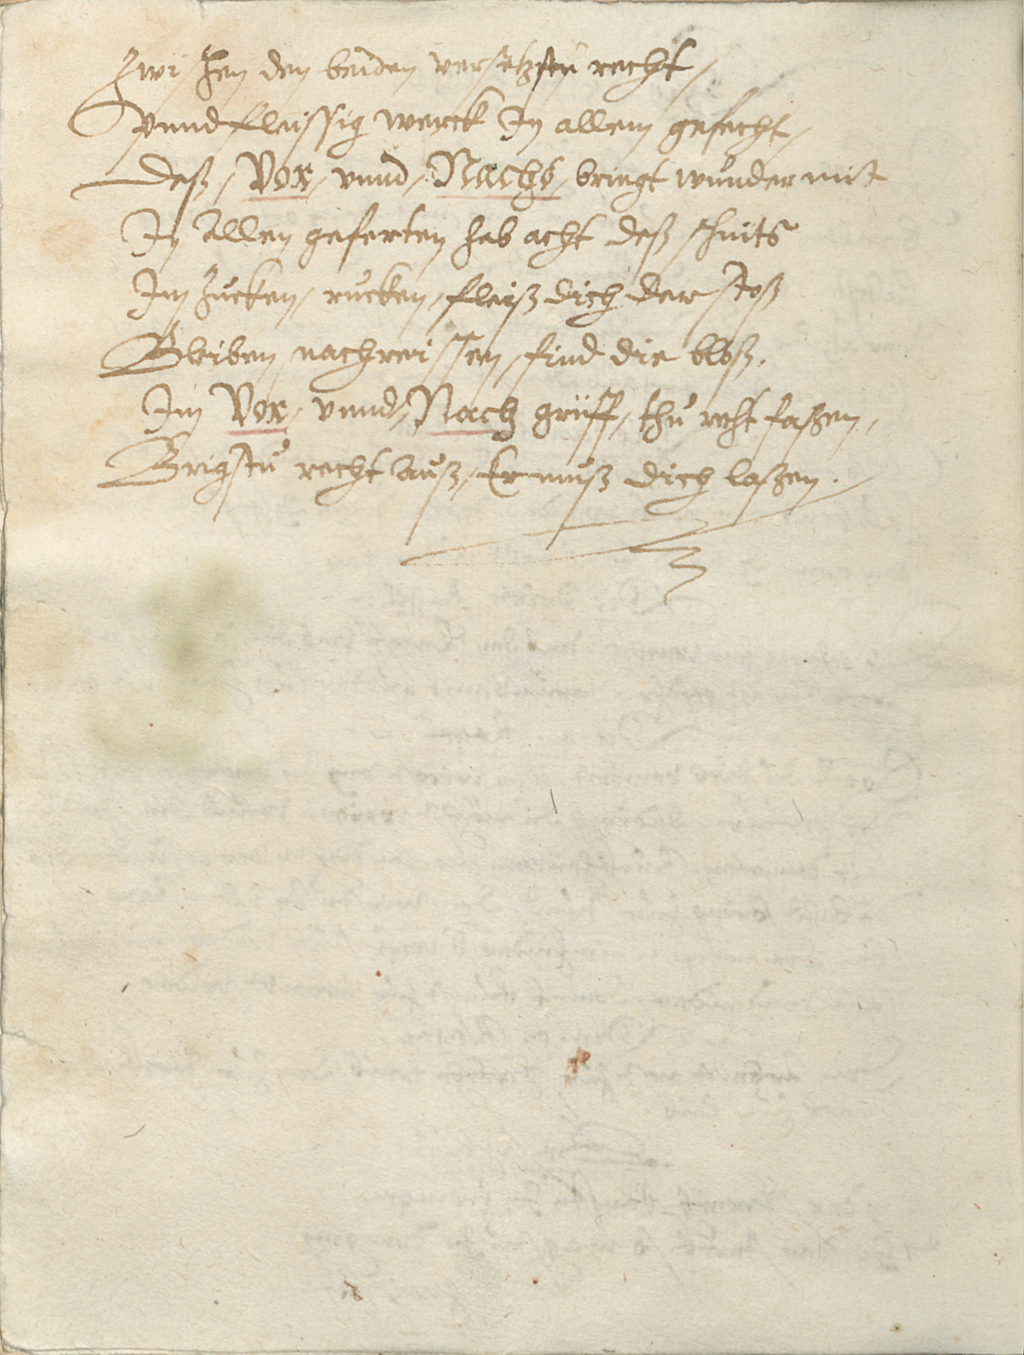 Zwischen den beiden versetzstu recht,
vnnd fleissig werck In allem gefecht,
Deß, Vor, vnnd, Nachs, bringt wunder mit
In Allen geferten hab acht deß schnits
Im Zucken, rucken, fleiß dich der stoß
Bleiben nachreissen, find die bloß.
Im Vor, vnnd, Nach grüff, thu recht faßen,
Brigstu recht auß, Er muß dich laßen.